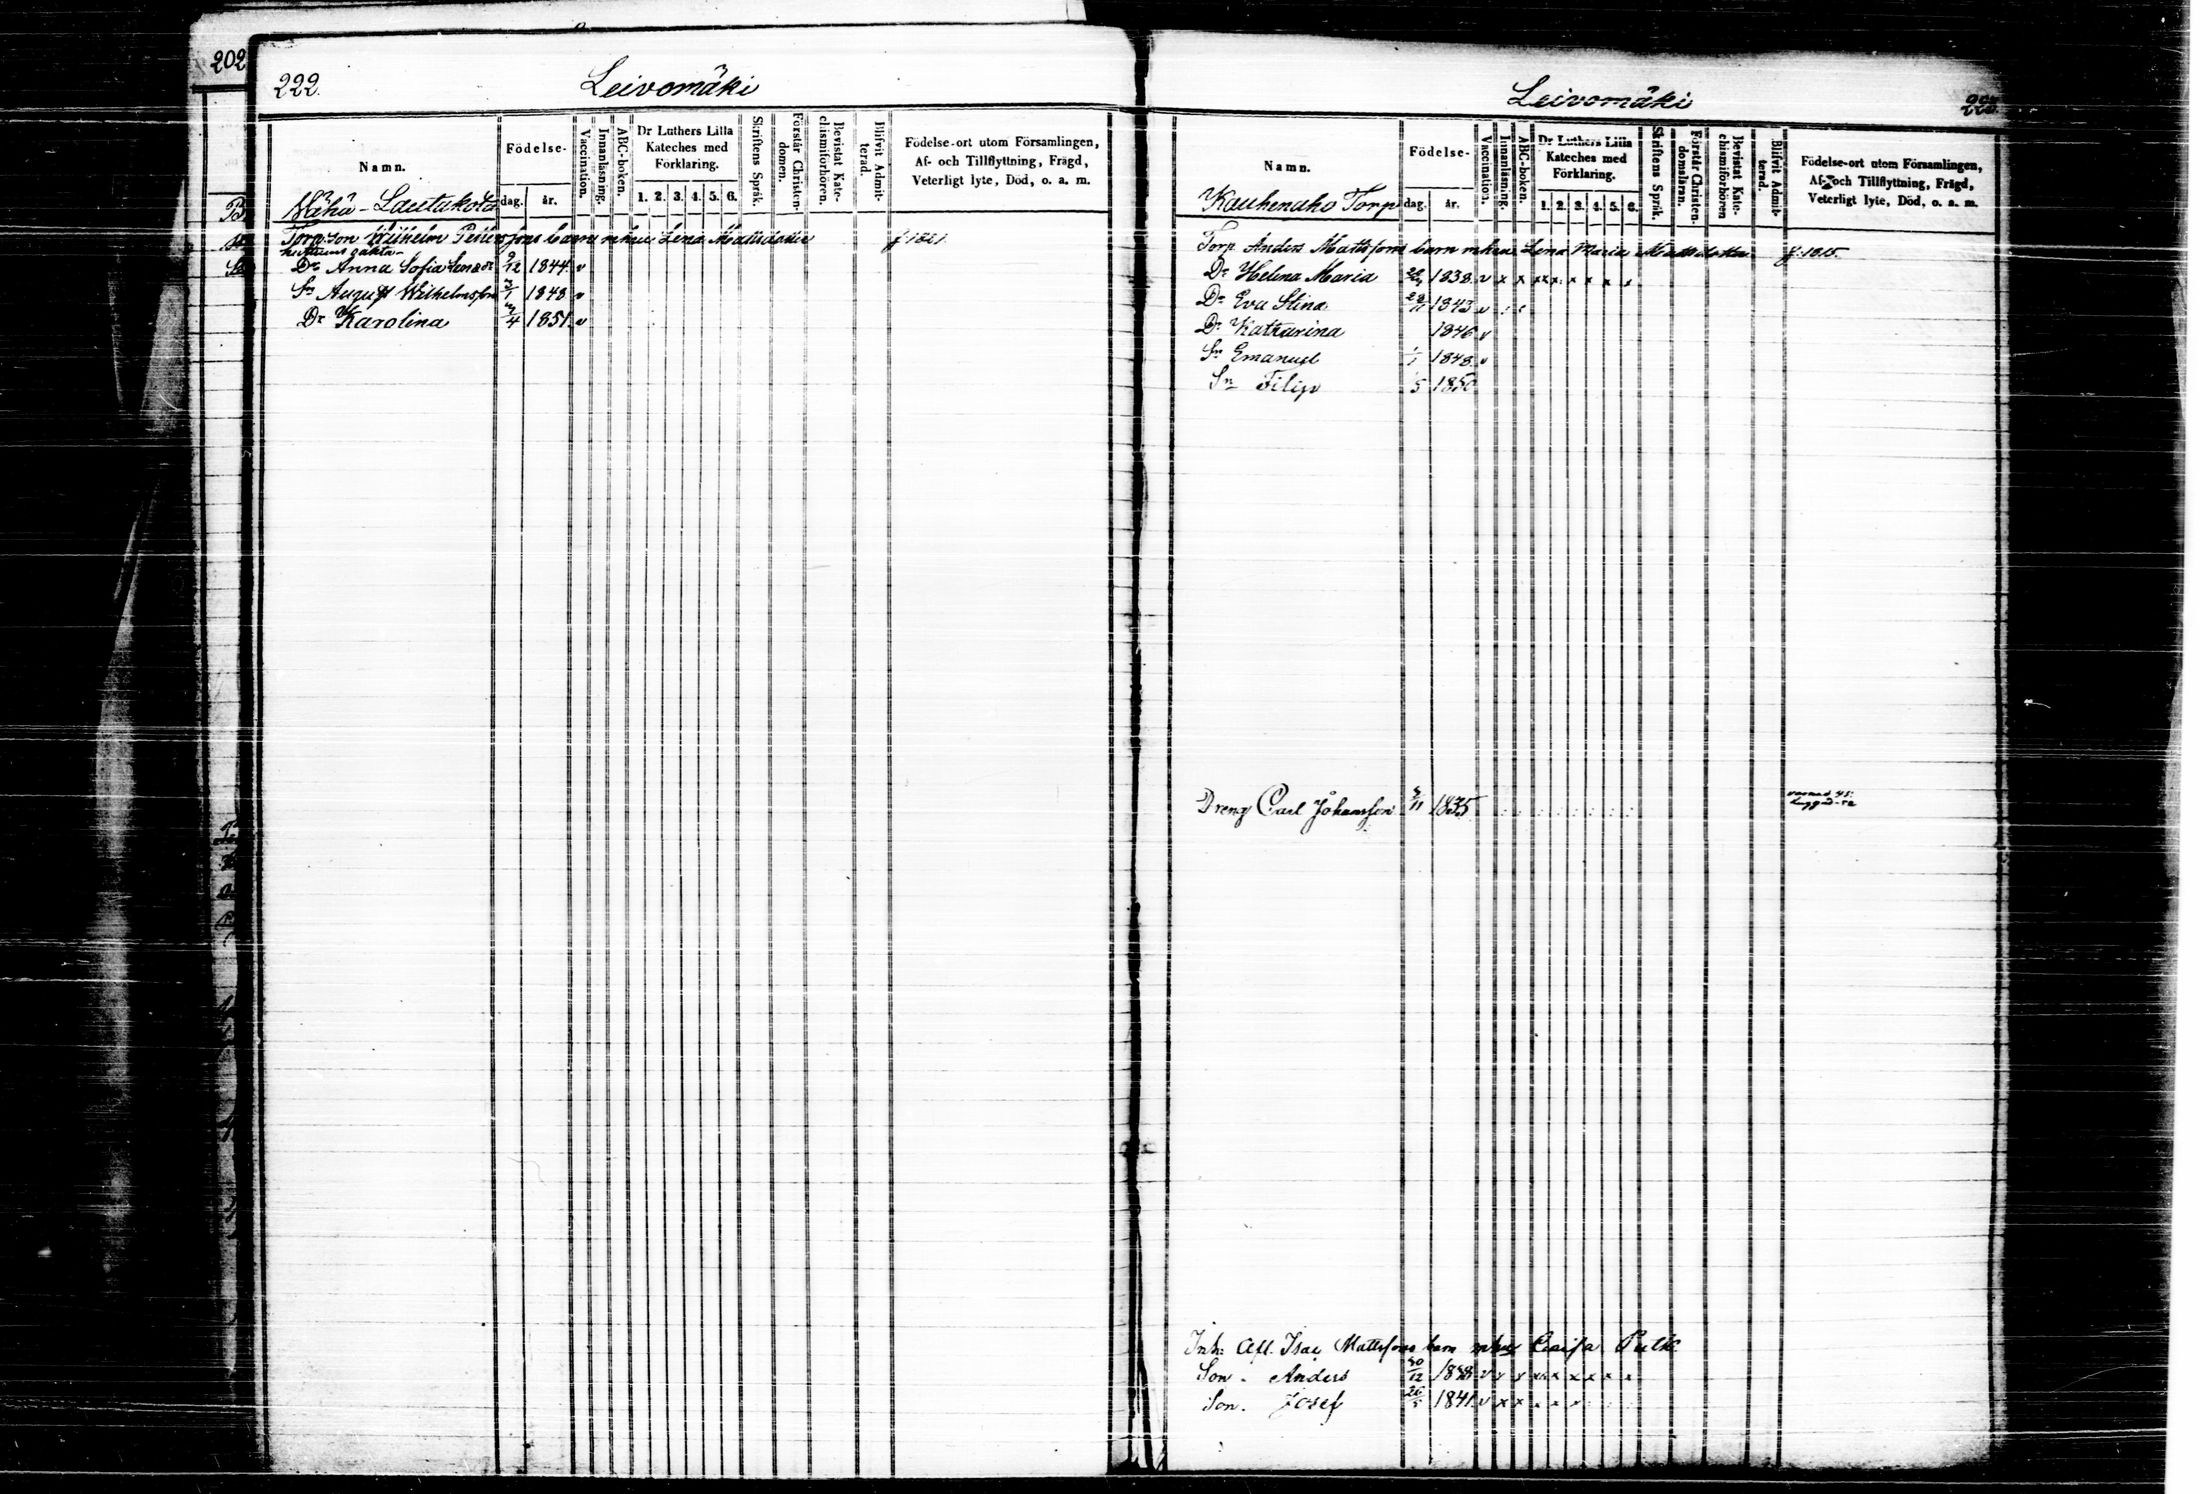 202
222.
Leivomäki
Namn.
Födelse-
dag.
år.
Vaccination.
Innanläsning.
ABC-boken.
Dr Luthers Lilla
Kateches med
Förklaring.
1. 2. 3. 4. 5. 6.
Skriftens Språk.
Förstår Christen-
domen.
Bevistat Kate-
chismiförhören.
Blifvit Admit-
terad.
Födelse-ort utom Församlingen,
Af- och Tillflyttning, Frägd,
Veterligt lyte, Död, o. a. m.
Wähä-Lautakota
Torp son Wilhelm Petterssons barn m hu Lena Mattsdotter f. 1821
Dr Anna Sofia 9/12 1844 v
Sn August Wilhelmsson 1848 v
Dr Karolina 1851 v
Leivomäki
223
Namn.
Födelse-
dag.
år.
Vaccination.
Innanläsning.
ABC-boken.
Dr Luthers Lilla
Kateches med
Förklaring.
1. 2. 3. 4. 5. 6.
Skriftens Språk.
Förstår Christen-
domsläran.
Bevistat Kate-
chismiförhören
Blifvit Admit-
terad.
Födelse-ort utom Församlingen,
Af- och Tillflyttning, Frägd,
Veterligt lyte, Död, o. a. m.
Kauhenaho Torp
Torp. Anders Mattssons barn m hu Lena Maria Mattsdotter f. 1815.
Dr Helena Maria 1838 v x x xx x x x x
Dr Eva Stina 28/11 1843 v
Dr Katharina 1846 v
Sn Emanuel 1/1 1848 v
Sn Filip 1/5 1850
Dreng Carl Johansson 1835
Inh: Afl. Isac Mattssons barn m hu Caisa
Son. Anders 30/12 1838 v
Son. Josef 26/5 1841 v x x